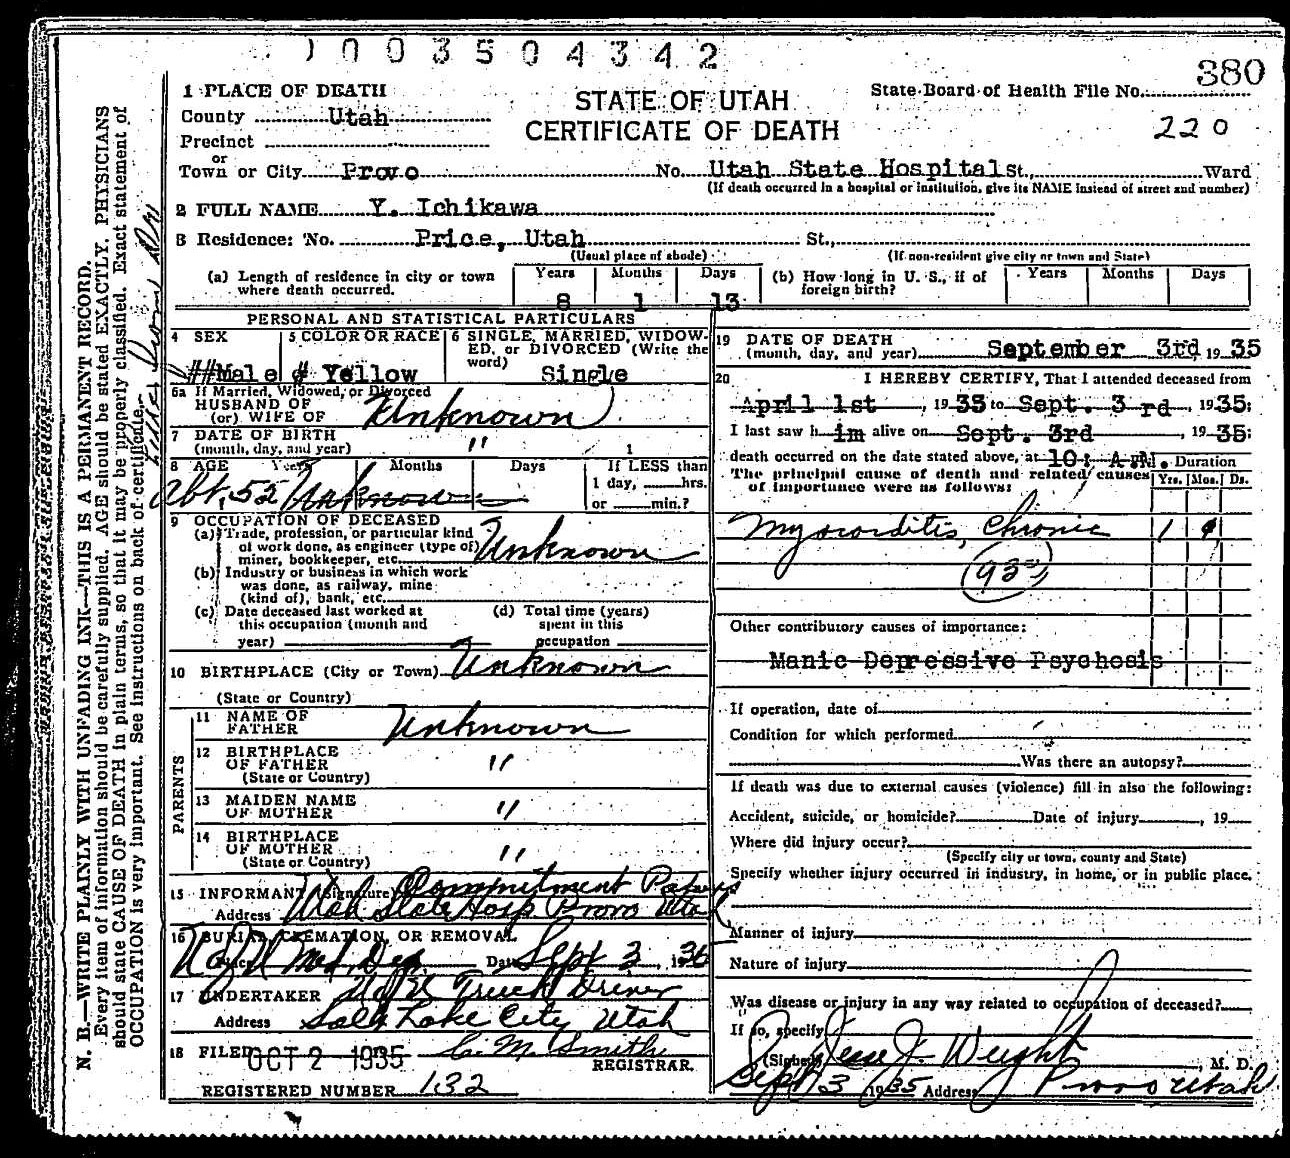 1003504342
380
1 PLACE OF DEATH
STATE OF UTAH
State Board of Health File No.
County Utah
CERTIFICATE OF DEATH
220
Precinct
or
Town or City Provo No. Utah State Hospital St., Ward
(If death occurred in a hospital or institution, give its NAME instead of street and number)
2 FULL NAME Y. Ichikawa
3 Residence: No. Price, Utah St.,
(Usual place of abode) (If non-resident give city or town and State)
(a) Length of residence in city or town where death occurred. Years 8 Months 1 Days 13
(b) How long in U. S., if of foreign birth? Years Months Days
PERSONAL AND STATISTICAL PARTICULARS
4 SEX ##Male
5 COLOR OR RACE # Yellow
6 SINGLE, MARRIED, WIDOWED, or DIVORCED (Write the word) Single
6a If Married, Widowed, or Divorced
HUSBAND OF
(or) WIFE OF Unknown
7 DATE OF BIRTH
(month, day, and year) " 1
8 AGE Years Months Days If LESS than
1 day, hrs.
or min.?
Abt. 52 Unknown
9 OCCUPATION OF DECEASED
(a) Trade, profession, or particular kind
of work done, as engineer (type of)
miner, bookkeeper, etc. Unknown
(b) Industry or business in which work
was done, as railway, mine
(kind of), bank, etc.
(c) Date deceased last worked at
this occupation (month and
year)
(d) Total time (years)
spent in this
occupation
10 BIRTHPLACE (City or Town) Unknown
(State or Country)
PARENTS
11 NAME OF
FATHER Unknown
12 BIRTHPLACE
OF FATHER "
(State or Country)
13 MAIDEN NAME
OF MOTHER "
14 BIRTHPLACE
OF MOTHER "
(State or Country)
15 INFORMANT (Signature) Commitment Papers
Address Utah State Hosp. Provo Utah
16 BURIAL, CREMATION, OR REMOVAL
U of U Med. Dep. Date Sept 3, 1935
17 UNDERTAKER U of U Truck Driver
Address Salt Lake City Utah
18 FILED OCT 2 1935 C. M. Smith
REGISTRAR.
REGISTERED NUMBER 132
19 DATE OF DEATH
(month, day, and year) September 3rd 1935
20 I HEREBY CERTIFY, That I attended deceased from
April 1st, 1933 to Sept. 3 rd, 1935:
I last saw him alive on Sept. 3rd, 1935:
death occurred on the date stated above, at 10: A.M. Duration
The principal cause of death and related causes
of importance were as follows:
Yrs. Mos. Ds.
Myocarditis, Chronic 1
Other contributory causes of importance:
Manic-Depressive Psychosis
If operation, date of
Condition for which performed
Was there an autopsy?
If death was due to external causes (violence) fill in also the following:
Accident, suicide, or homicide? Date of injury, 19
Where did injury occur?
(Specify city or town, county and State)
Specify whether injury occurred in industry, in home, or in public place.
Manner of injury
Nature of injury
Was disease or injury in any way related to occupation of deceased?
If so, specify
(Signed) Jesse J. Weight, M. D.
Sept 3 1935 Address Provo Utah
N. B.—WRITE PLAINLY WITH UNFADING INK—THIS IS A PERMANENT RECORD.
Every item of information should be carefully supplied. AGE should be stated EXACTLY. PHYSICIANS
should state CAUSE OF DEATH in plain terms, so that it may be properly classified. Exact statement of
OCCUPATION is very important. See instructions on back of certificate.